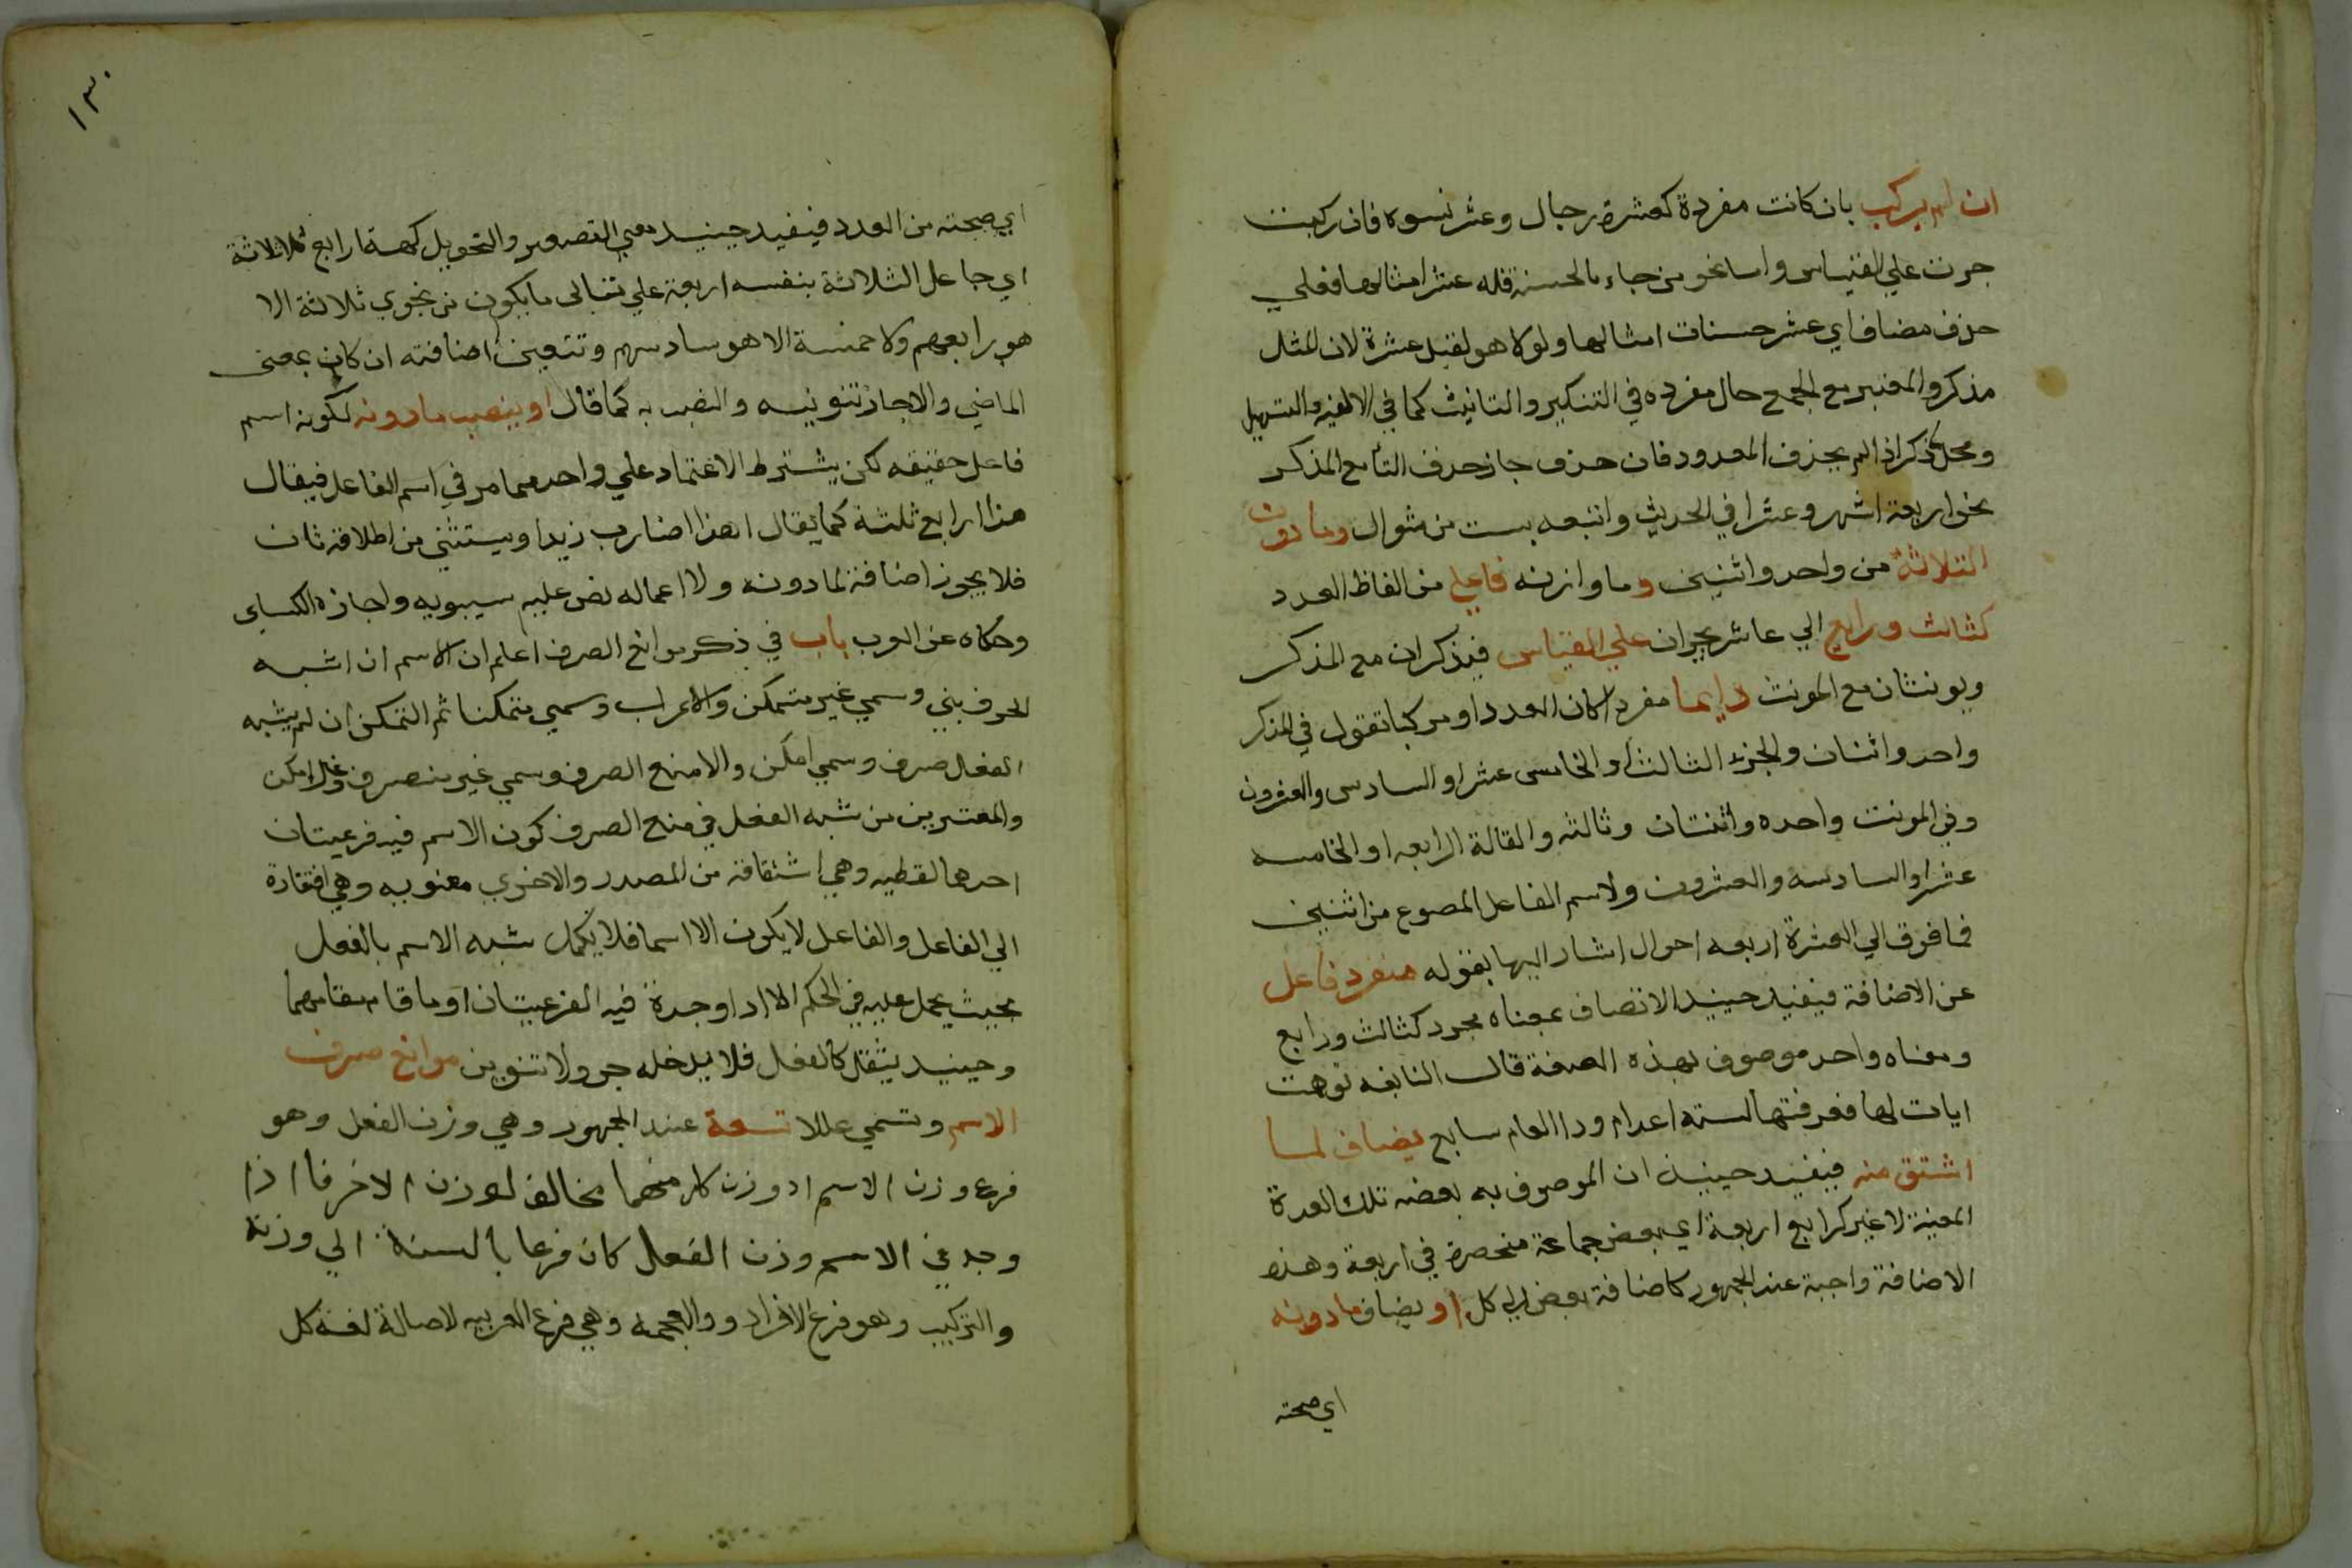 ان لم يركب بان كانت مفردة كعشرة رجال وعشر نسوه فان ركبت
جرت علي القياس واما نحو من جاء بالحسنة فله عشر امثالها فعلي
حذف مضاف اي عشر حسنات امثالها ولولا هو لقيل عشرة لان المثل
مذكر والمعتبر مع الجمع حال مفرده في التذكير والتانيث كما في الالفيه والتسهيل
ومحل ذكر اذا لم يحذف المعدود فان حذف جاز حذف التا مع المذكر
نحو اربعة اشهر وعشرا في الحديث واتبعه بست من شوال وما دون
الثلاثة من واحد واثنين وما وازنه فاعل من الفاظ العدد
كثالث ورابع الي عاشر يجران علي القياس فيذكران مع المذكر
ويونثان مع المونث دايما مفردا كان العدد او مركبا تقول في المذكر
واحد واثنان والجزء الثالث او الخامس عشر او السادس والعشرون
وفي المونث واحده واثنتان وثالثه والقالة الرابعه او الخامسه
عشر او السادسه والعشرون ولاسم الفاعل المصوع من اثنين
فما فوق الي العشرة اربعه احوال اشار اليها بقوله منفرد فاعل
عن الاضافة فيفيد حينيد الاتصاف بمعناه مجرد كثالث ورابع
ومعناه واحد موصوف بهذه الصفة قال النابغه توهمت
ايات لها فعرفتها لسته اعدام وذا العام سابع يضاف لما
اشتق منه فيفيد حينيد ان الموصوف به بعضه تلك العدة
المعينة لا غير كرابع اربعة اي بعض جماعة منحصرة في اربعة وهذه
الاضافة واجبة عند الجمهور كاضافة بعض الي كل او يضاف ما دونه
اي صحته
١٣٠
اي صحته من العدد فيفيد حينيد معني التصوير والتحويل كهذا رابع ثلاثة
اي جاعل الثلاثة بنفسه اربعة علي تتالى ما يكون من نجوي ثلاثة الا
هو رابعهم ولا خمسة الا هو سادسهم وتتعين اضافته ان كان بمعنى
الماضي والا جاز تنوينه والنصب به كما قال او ينصب ما دونه لكونه اسم
فاعل حقيقه لكن يشترط الاعتماد علي واحد مما مر في اسم الفاعل فيقال
هذا رابع ثلثة كما يقال اهذا ضارب زيدا ويستثني من اطلاقه ثان
فلا يجوز اضافة لما دونه ولا اعماله نص عليه سيبويه واجازه الكساي
وحكاه عن العرب باب في ذكر موانع الصرف اعلم ان الاسم ان اشبه
الحرف بني وسمي غير متمكن والا عراب وسمي متمكنا ثم التمكن ان لم يشبه
الفعل صرف وسمي امكن والا منع الصرف وسمي غير منصرف وغير امكن
والمعتبرين من شبه الفعل في منع الصرف كون الاسم فيه فرعيتان
احدها لفظيه وهي اشتقاقه من المصدر والاخري معنويه وهي افتقاره
الي الفاعل والفاعل لا يكون الا اسما فلا يكمل شبه الاسم بالفعل
بحيث يحمل عليه في الحكم الا اذا وجدة فيه الفرعيتان او ما قام مقامهما
وحينيد يثقل كالفعل فلا يدخله جر ولا تنوين موانع صرف
الاسم وتسمي عللا تسعة عند الجمهور وهي وزن الفعل وهو
فرع وزن الاسم اد وزن كل منهما مخالف لوزن الاخر فا اذا
وجد في الاسم وزن الفعل كان فرعا بالسنة الي وزنه
والتركيب وهو فرع الافراد و والعجمه وهي فرع العربيه لاصالة لغة كل